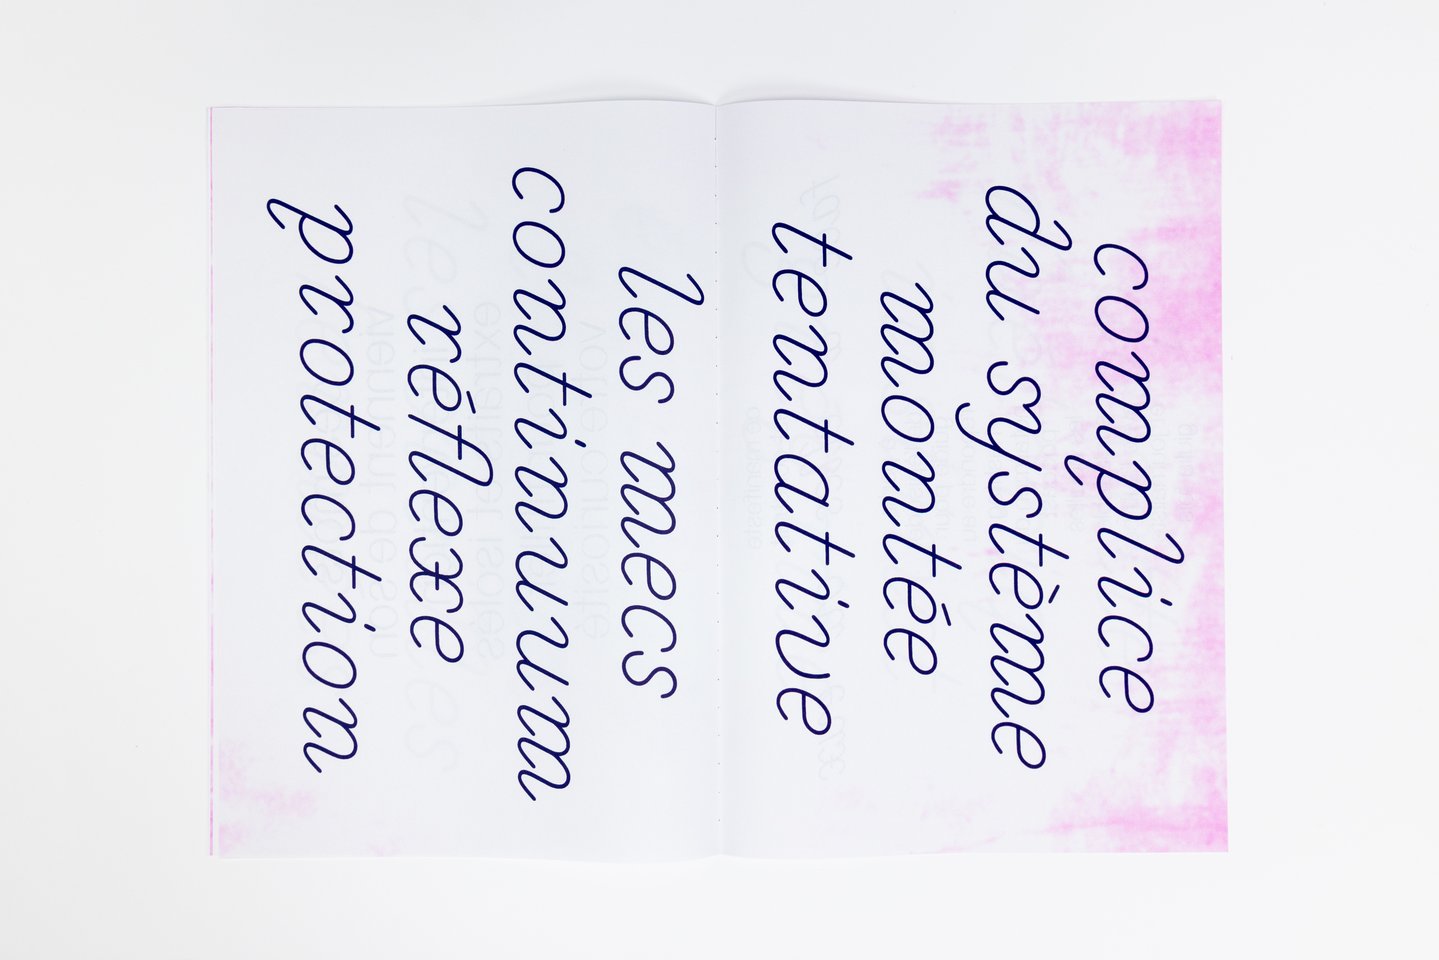 complice
du système
montée
tentative
les mecs
continuum
réflexe
protection